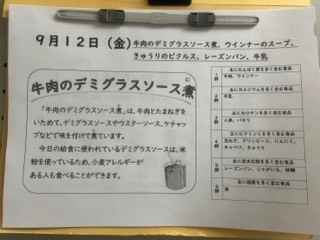 9月12日（金）牛肉のデミグラスソース煮、ウインナーのスープ、
きゅうりのピクルス、レーズンパン、牛乳
牛肉のデミグラスソース煮
に
「牛肉のデミグラスソース煮」は、牛肉とたまねぎを
いためて、デミグラスソースやウスターソース、ケチャッ
プなどで味を付けて煮ています。
今日の給食に使われているデミグラスソースは、米
粉を使っているため、小麦アレルギーが
ある人も食べることができます。
1群
主にたんぱく質を多く含む食品
牛肉、ウインナー
2群
主にカルシウムを多く含む食品
牛乳
3群
主にカロテンを多く含む食品
人参、パセリ
4群
主にビタミンCを多く含む食品
玉ねぎ、グリンピース、にんにく、
キャベツ、きゅうり
5群
主に炭水化物を多く含む食品
レーズンパン、じゃがいも、砂糖
6群
主に脂質を多く含む食品
油